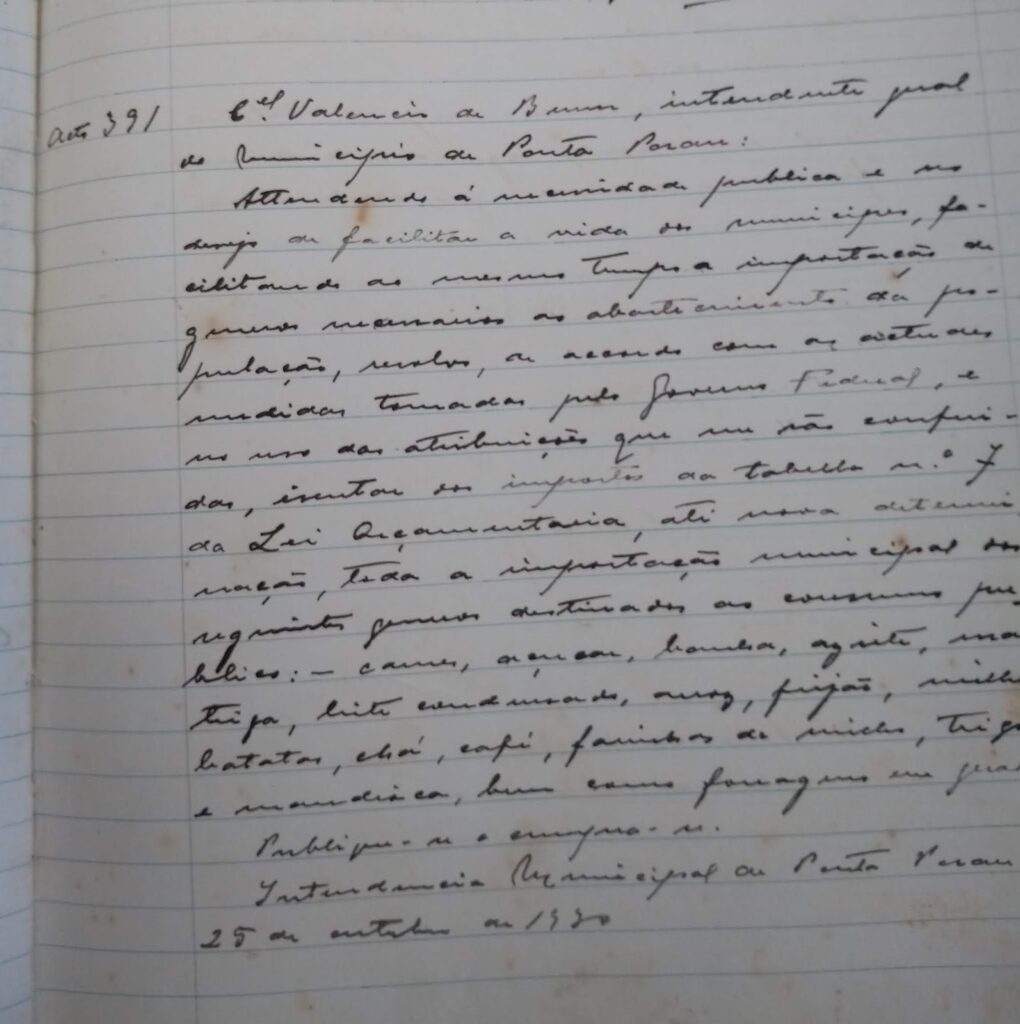 Acto 391
Cel Valencio de Brum, intendente geral
do Municipio de Ponta Poran:
Attendendo á necessidade publica e no
desejo de facilitar a vida dos municipes, fa-
cilitando ao mesmo tempo a importação de
generos necessarios ao abastecimento da po-
pulação, resolvo, de acordo com as actuaes
medidas tomadas pelo Governo Federal, e
no uso das atribuições que me são conferi-
das, isentar dos impostos da tabella n.º 7
da Lei Orçamentaria, até nova determi
nação, toda a importação municipal dos
seguintes generos destinados ao consumo pu-
blico: - carnes, açucar, banha, azeite, man
teiga, leite condensado, arroz, feijão, milho
batatas, chá, café, farinhas de milho, trigo
e mandioca, bem como forragens em geral
Publique-se e cumpra-se.
Intendencia Municipal de Ponta Poran
25 de outubro de 1930